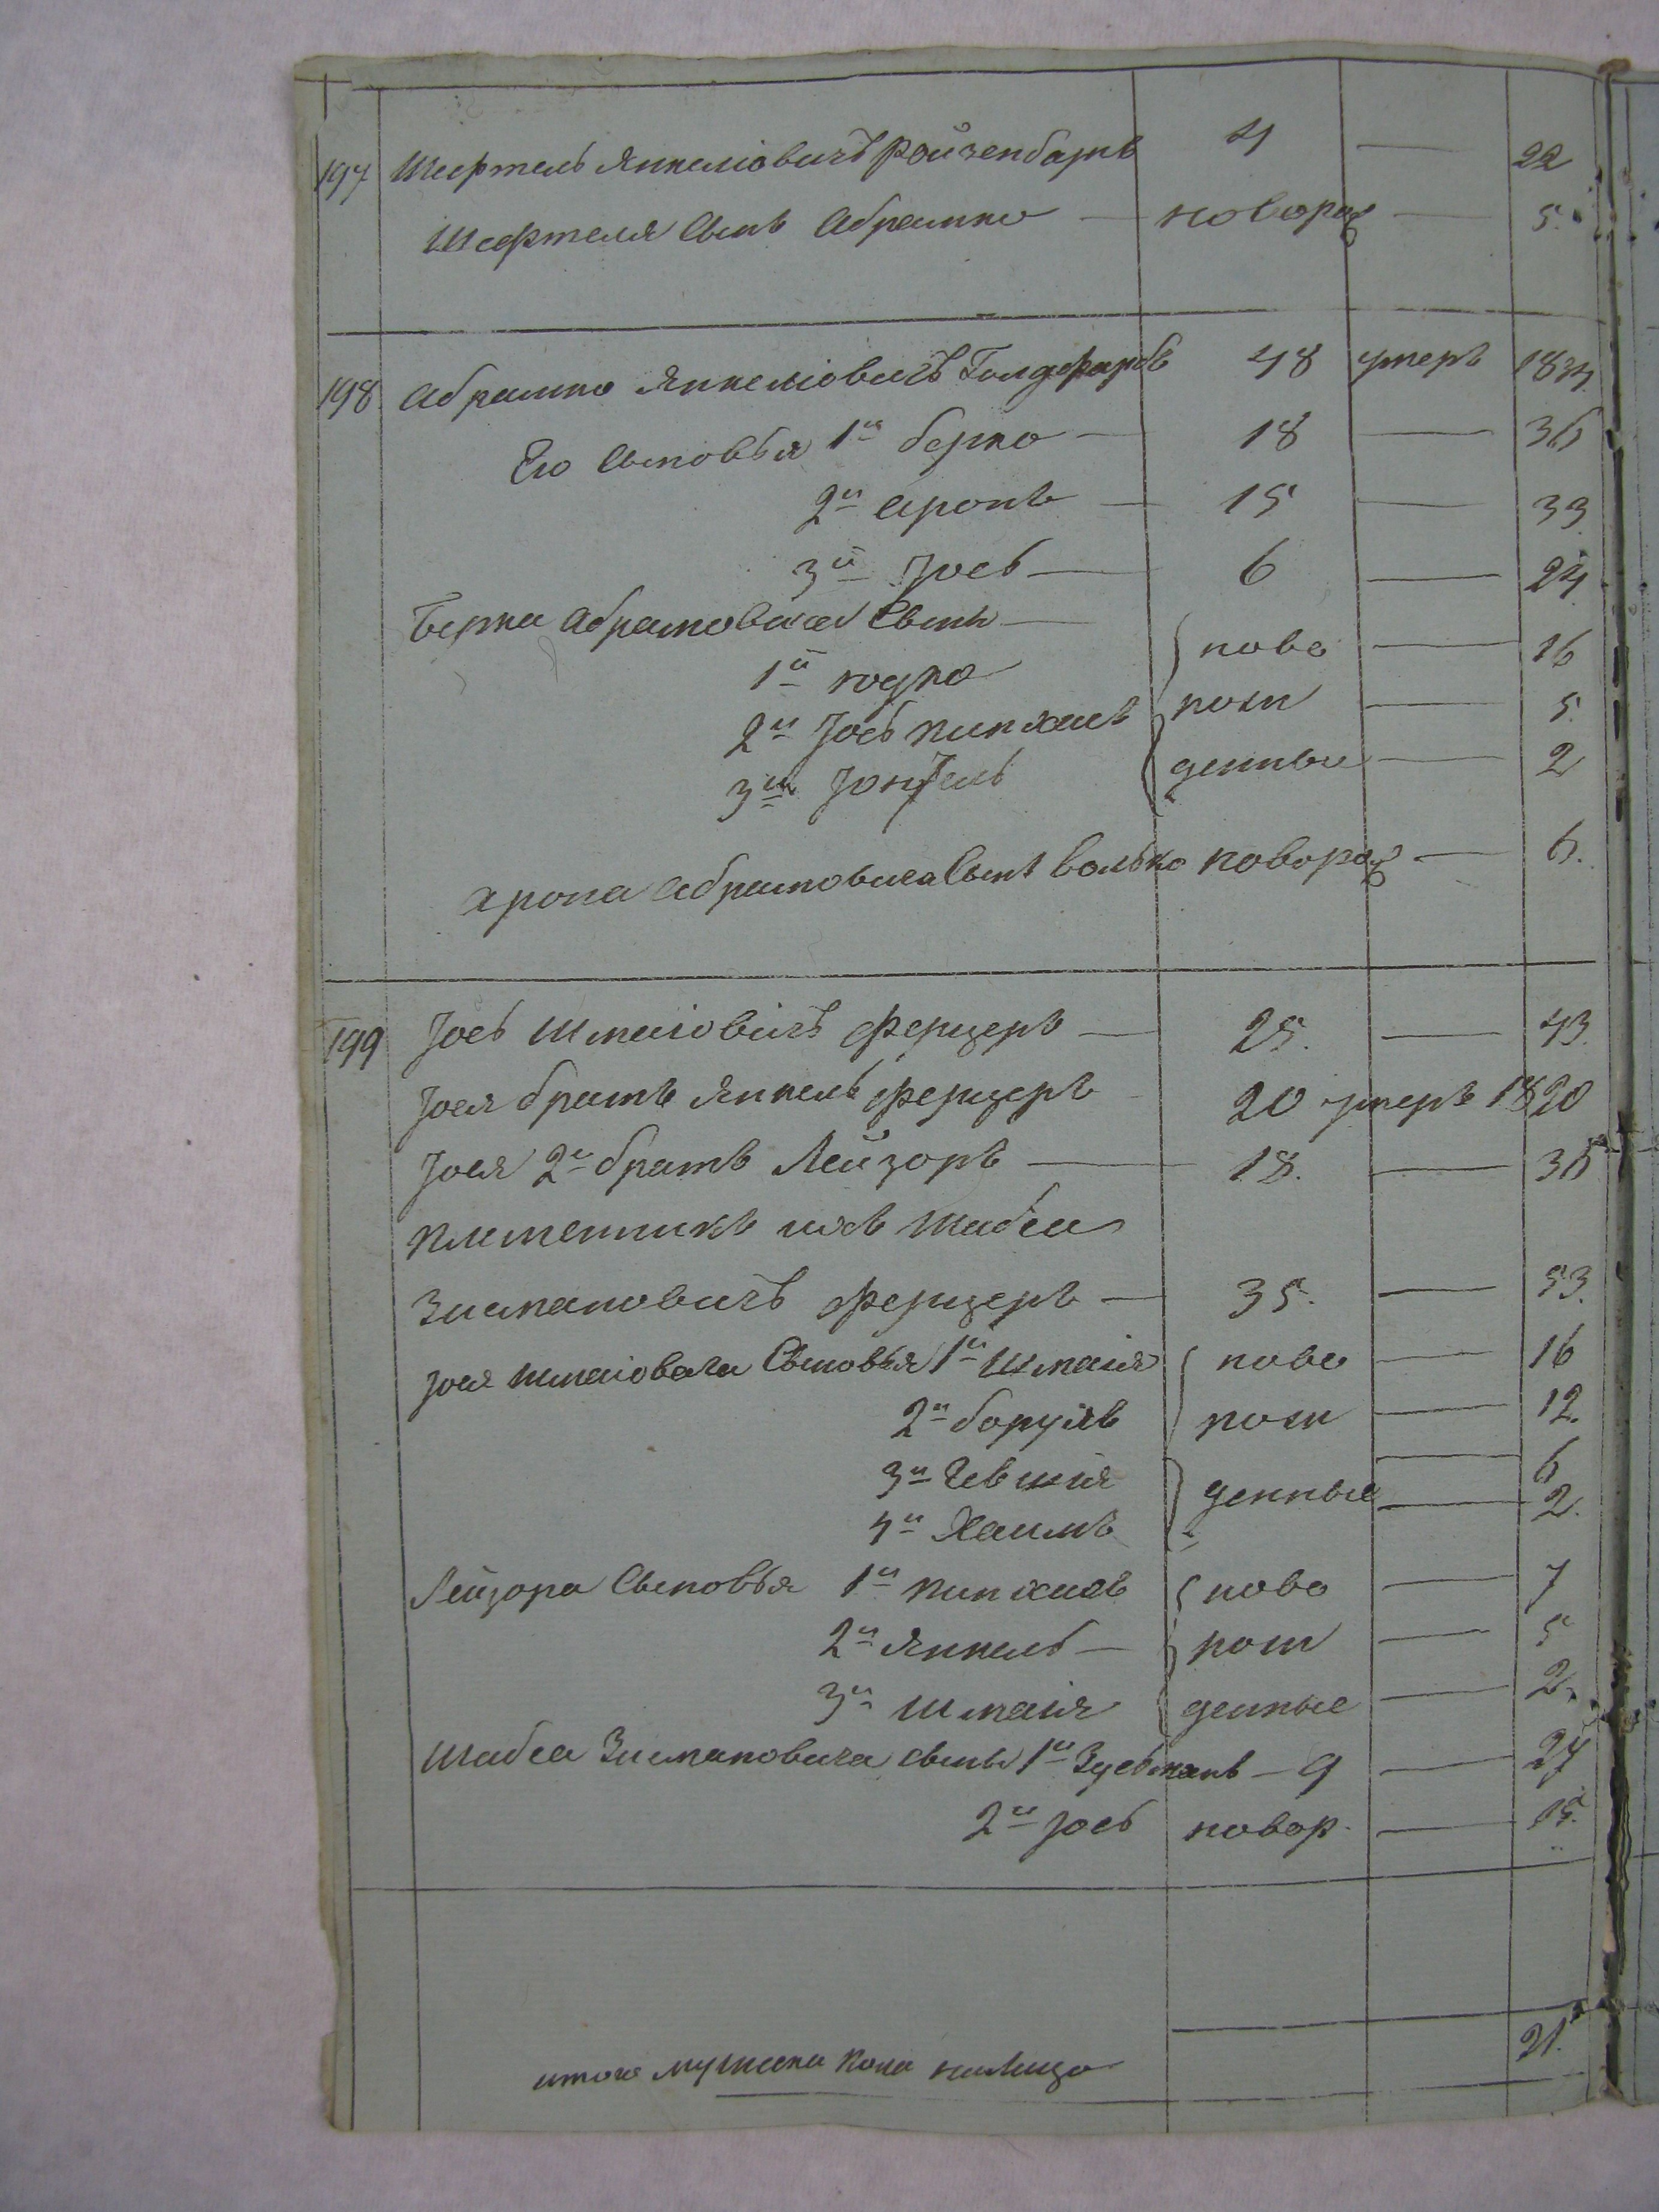 197 Шефтель Янкеліовичъ Ройзенбаръ 4 — 22
Шефтеля Сынъ Абрамко — новорож — 5.
198 Абрамко Янкеліовичъ Голдфарбъ 48 умеръ 1834.
Его Сыновья 1й Берко — 18 — 36
2й Аронъ — 15 — 33.
3й Іось — 6 — 24.
Берка Абрамовича Сыны —
1й Юдко ново — 16
2й Іось Пинхасъ рож — 5.
3й денные — 2
Арона Абрамовича Сынъ Волько новорож — 6.
199 Іось Шмаіовичъ Ферцеръ — 25. — 43.
Іося братъ Янкель Ферцеръ 20 умеръ 1820
Іося 2й братъ Лейзоръ — 18. — 36
племенникъ ихъ Шабса
Зисмановичъ Ферцеръ — 35. — 53.
Іося Шмаіовича Сыновья 1й Шмаія ново — 16
2й Борухъ рож — 12.
3й денные — 6
4й Хаимъ — 2.
Лейзора Сыновья 1й Пинхасъ ново — 7
2й Янкель — рож — 5
3й Шмаія денные — 2.
Шабса Зисмановича сыны 1й Зусьманъ — 9 — 27
2й Іось новор. — 15.
итого мужеска пола налицо 21.